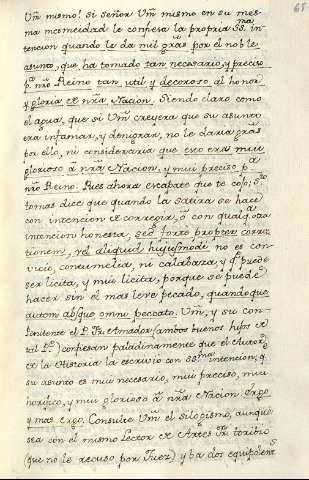 65
Vm̃ mismo! si señor Vm̃ mismo en su mes-
ma mesmeidad le confiesa la propria SS.ma in-
tencion quando le da mil gras por el noble
asunto, que ha tomado tan necesario, y preciso
p.a nr̃o Reino tan util y decoroso al honor
y gloria de nr̃a Nacion. Siendo claro como
el agua, que si Vm̃ creyera que su asunto
era infamar, y denigrar, no le daria gras
por ello, ni consideraria que eso era mui
glorioso a nr̃a Nacion, y mui preciso p.a
nr̃o Reino. Pues ahora escapate que te cojo; S.to
tomas dice que quando la satira se hace
con intencion de corregir, o con qualq.a otra
intencion honesta, sed forto propter correc-
tionem, vel aliquid hujusmodi no es con-
vicio, contumelia, ni calabaza, y q.e puede
ser licita, y mui licita, porque se puede
hacer sin el mas leve pecado, quandoque
autem absque omni peccato. Vm̃, y su con-
Penitente el P. Fr. Amador (ambos buenos hijos de
tal P.e) confiesan paladinamente que el Autor
de la Historia la escrivio con SS.ma intencion, q.
su asunto es mui necesario, mui preciso, mui
honorifico, y mui glorioso a nr̃a Nacion. Ergo
y mas Ergo. Consulte Vm̃ el silogismo, aunque
sea con el mismo Lector de Artes Fr. toribio
(que no le recuso por Juez) y ba dos equipolent.s